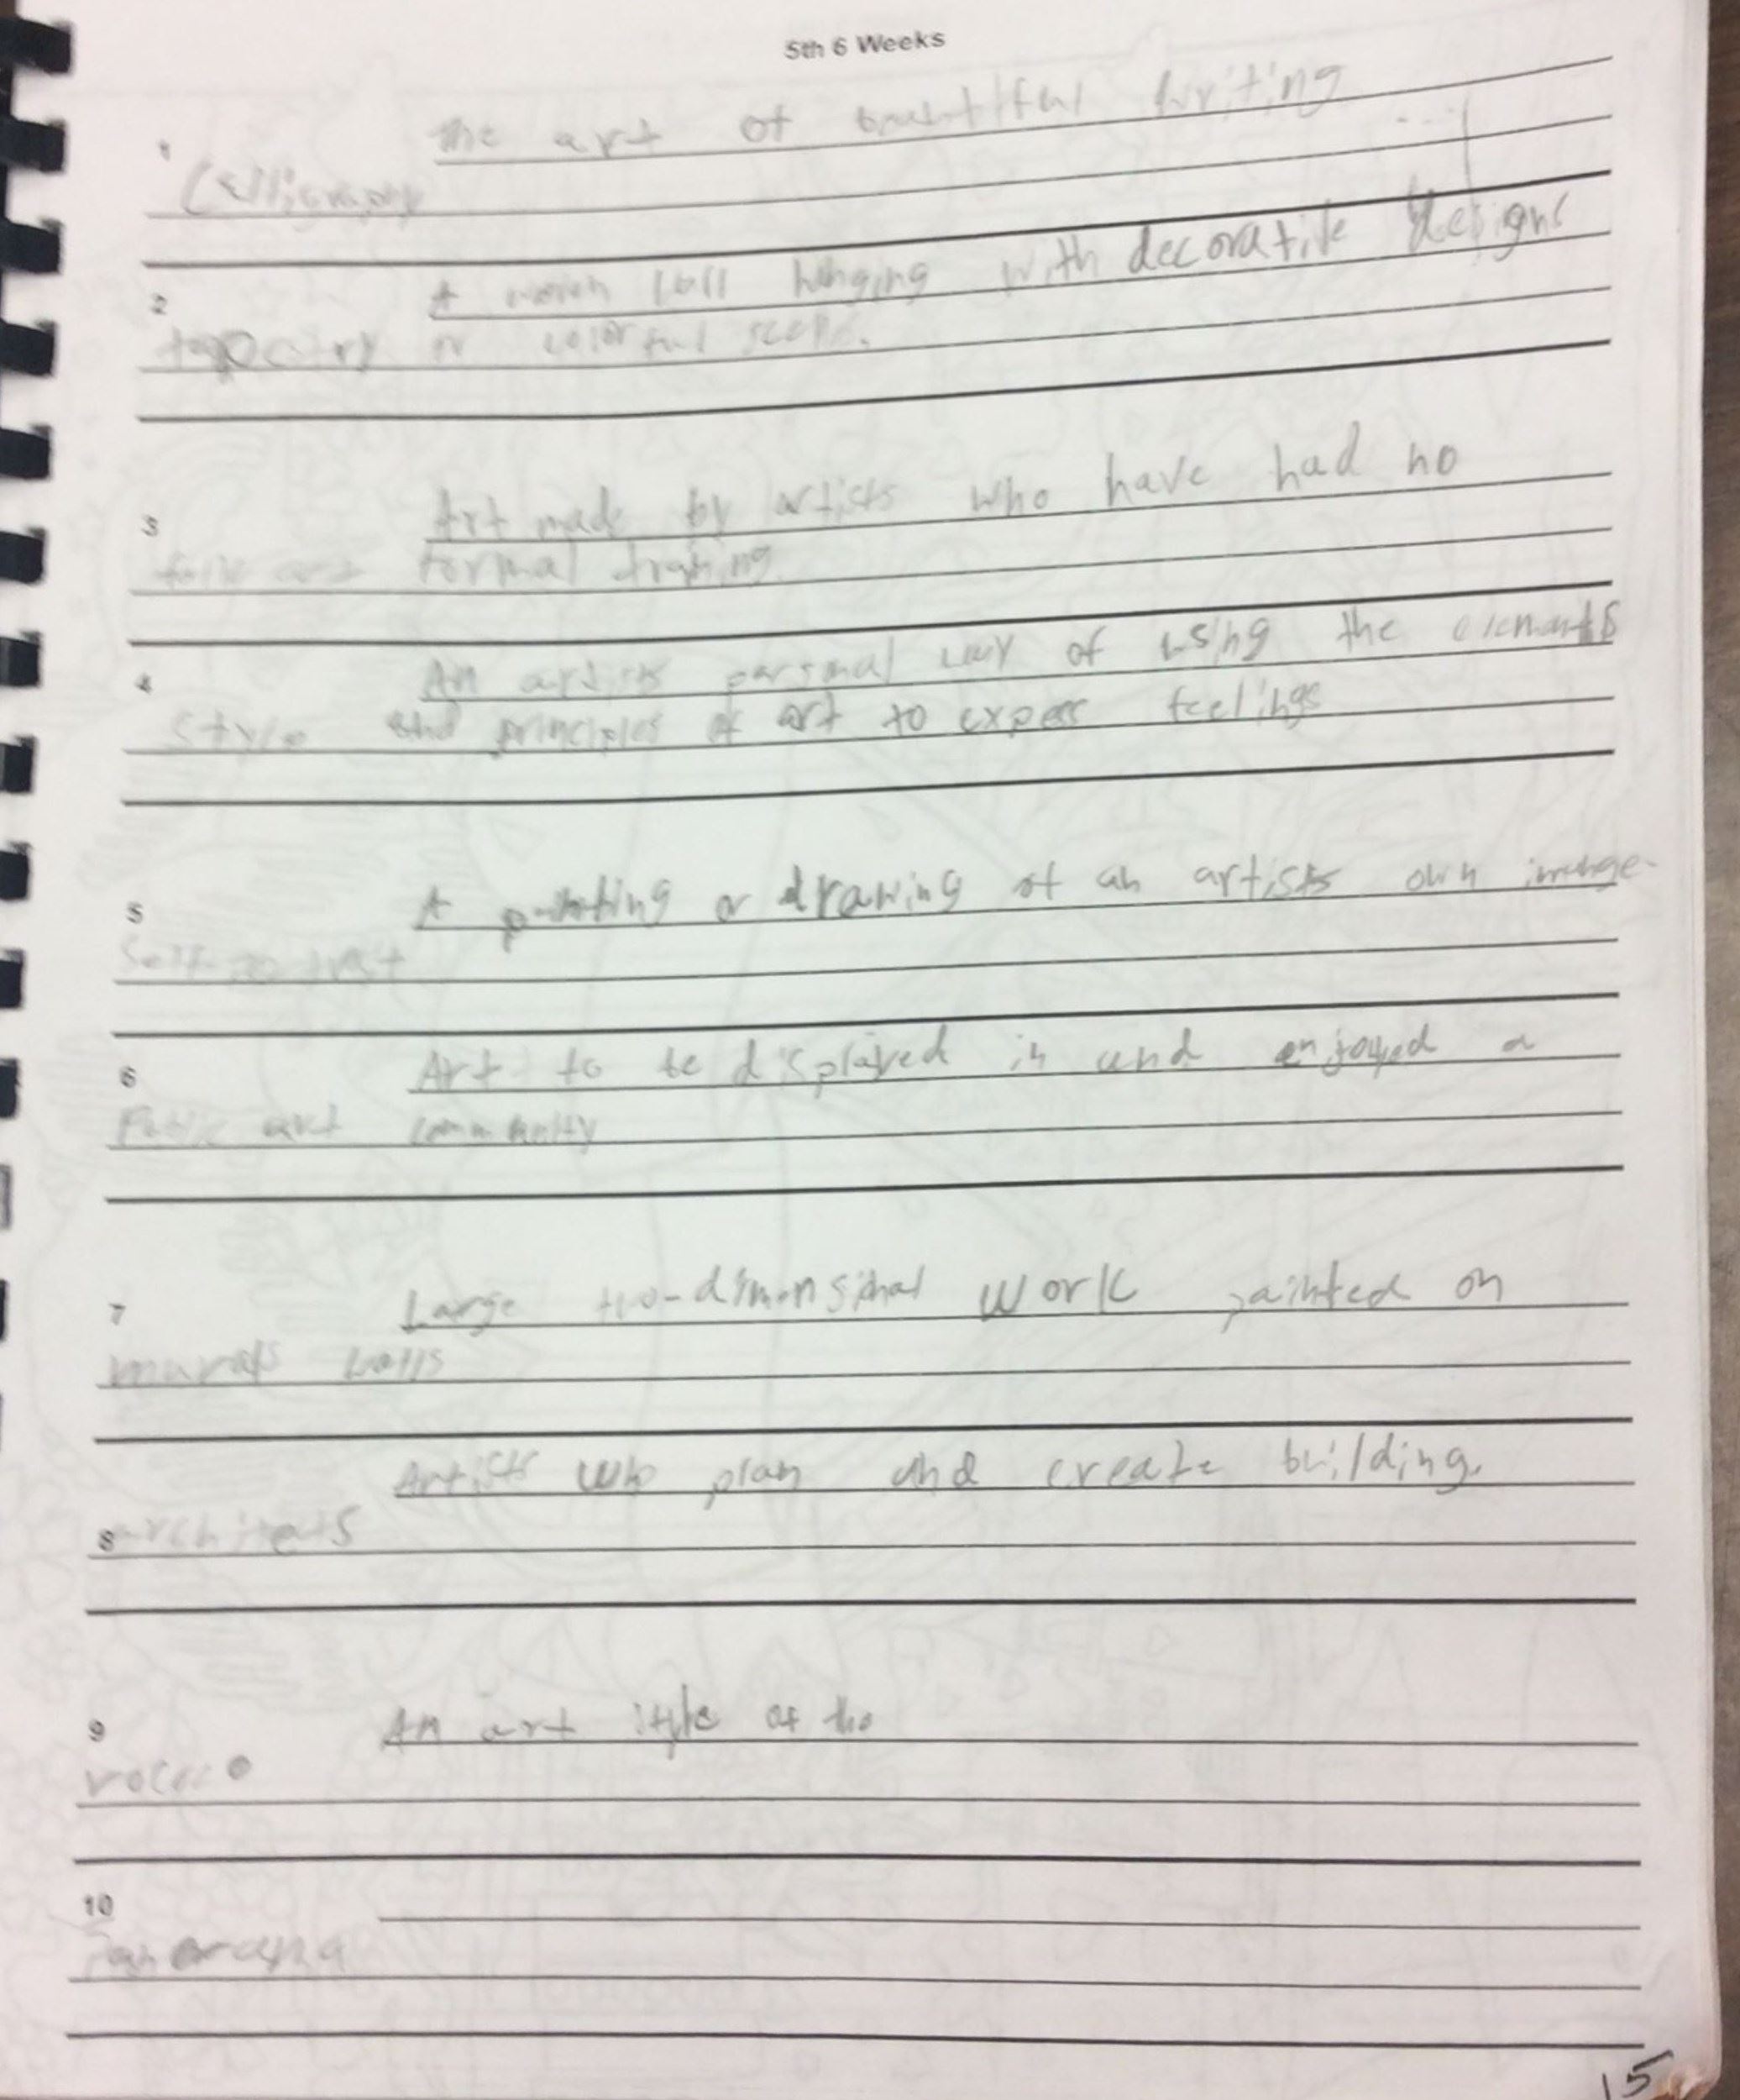 5th 6 Weeks
1 the art of beautiful writing
Calligraphy
2 A woven wall hanging with decorative designs
tapestry or colorful scene.
3 Art made by artists who have had no
folk art formal training
4 An artists personal way of using the elements
Style and principles of art to express feelings
5 A painting or drawing of an artists own image
Self-
6 Art to be displayed in and enjoyed a
Public art community
7 Large two-dimensional work painted on
murals walls
Artists who plan and create building.
8
9 An art style of the
rococo
10
Panorama
15